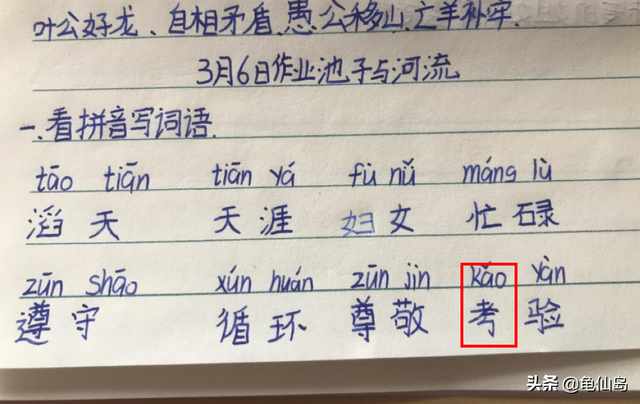 叶公好龙、自相矛盾、愚公移山、亡羊补牢.
3月6日作业池子与河流
一、看拼音写词语.
tāo tiān tiān yá fù nǚ máng lù
滔天 天涯 妇女 忙碌
zūn shāo xún huán zūn jìn kāo yàn
遵守 循环 尊敬 考验
头条 @龟仙岛